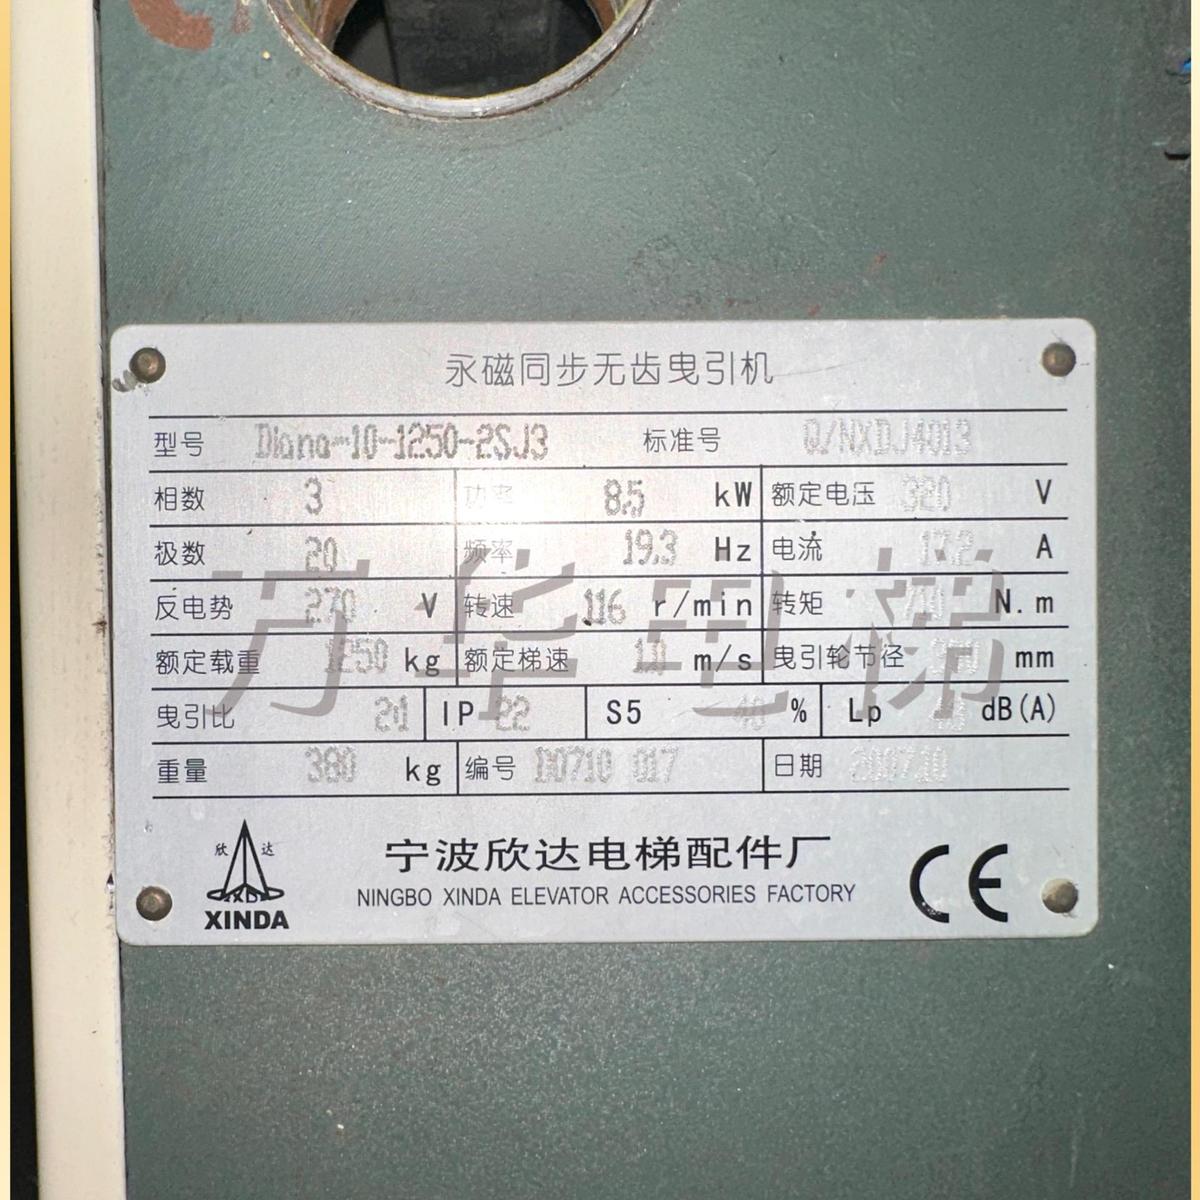 永磁同步无齿曳引机
型号 Diana-10-1250-2SJ3 标准号 Q/NXDJ4013
相数 3 功率 8.5 kW 额定电压 320 V
极数 20 频率 19.3 Hz 电流 17.2 A
反电势 270 V 转速 116 r/min 转矩 N.m
额定载重 1250 kg 额定梯速 1.0 m/s 曳引轮节径 mm
曳引比 2:1 IP 22 S5 40 % Lp dB(A)
重量 380 kg 编号 D0710 017 日期
万华电梯
欣 达
XINDA
宁波欣达电梯配件厂
NINGBO XINDA ELEVATOR ACCESSORIES FACTORY
CE